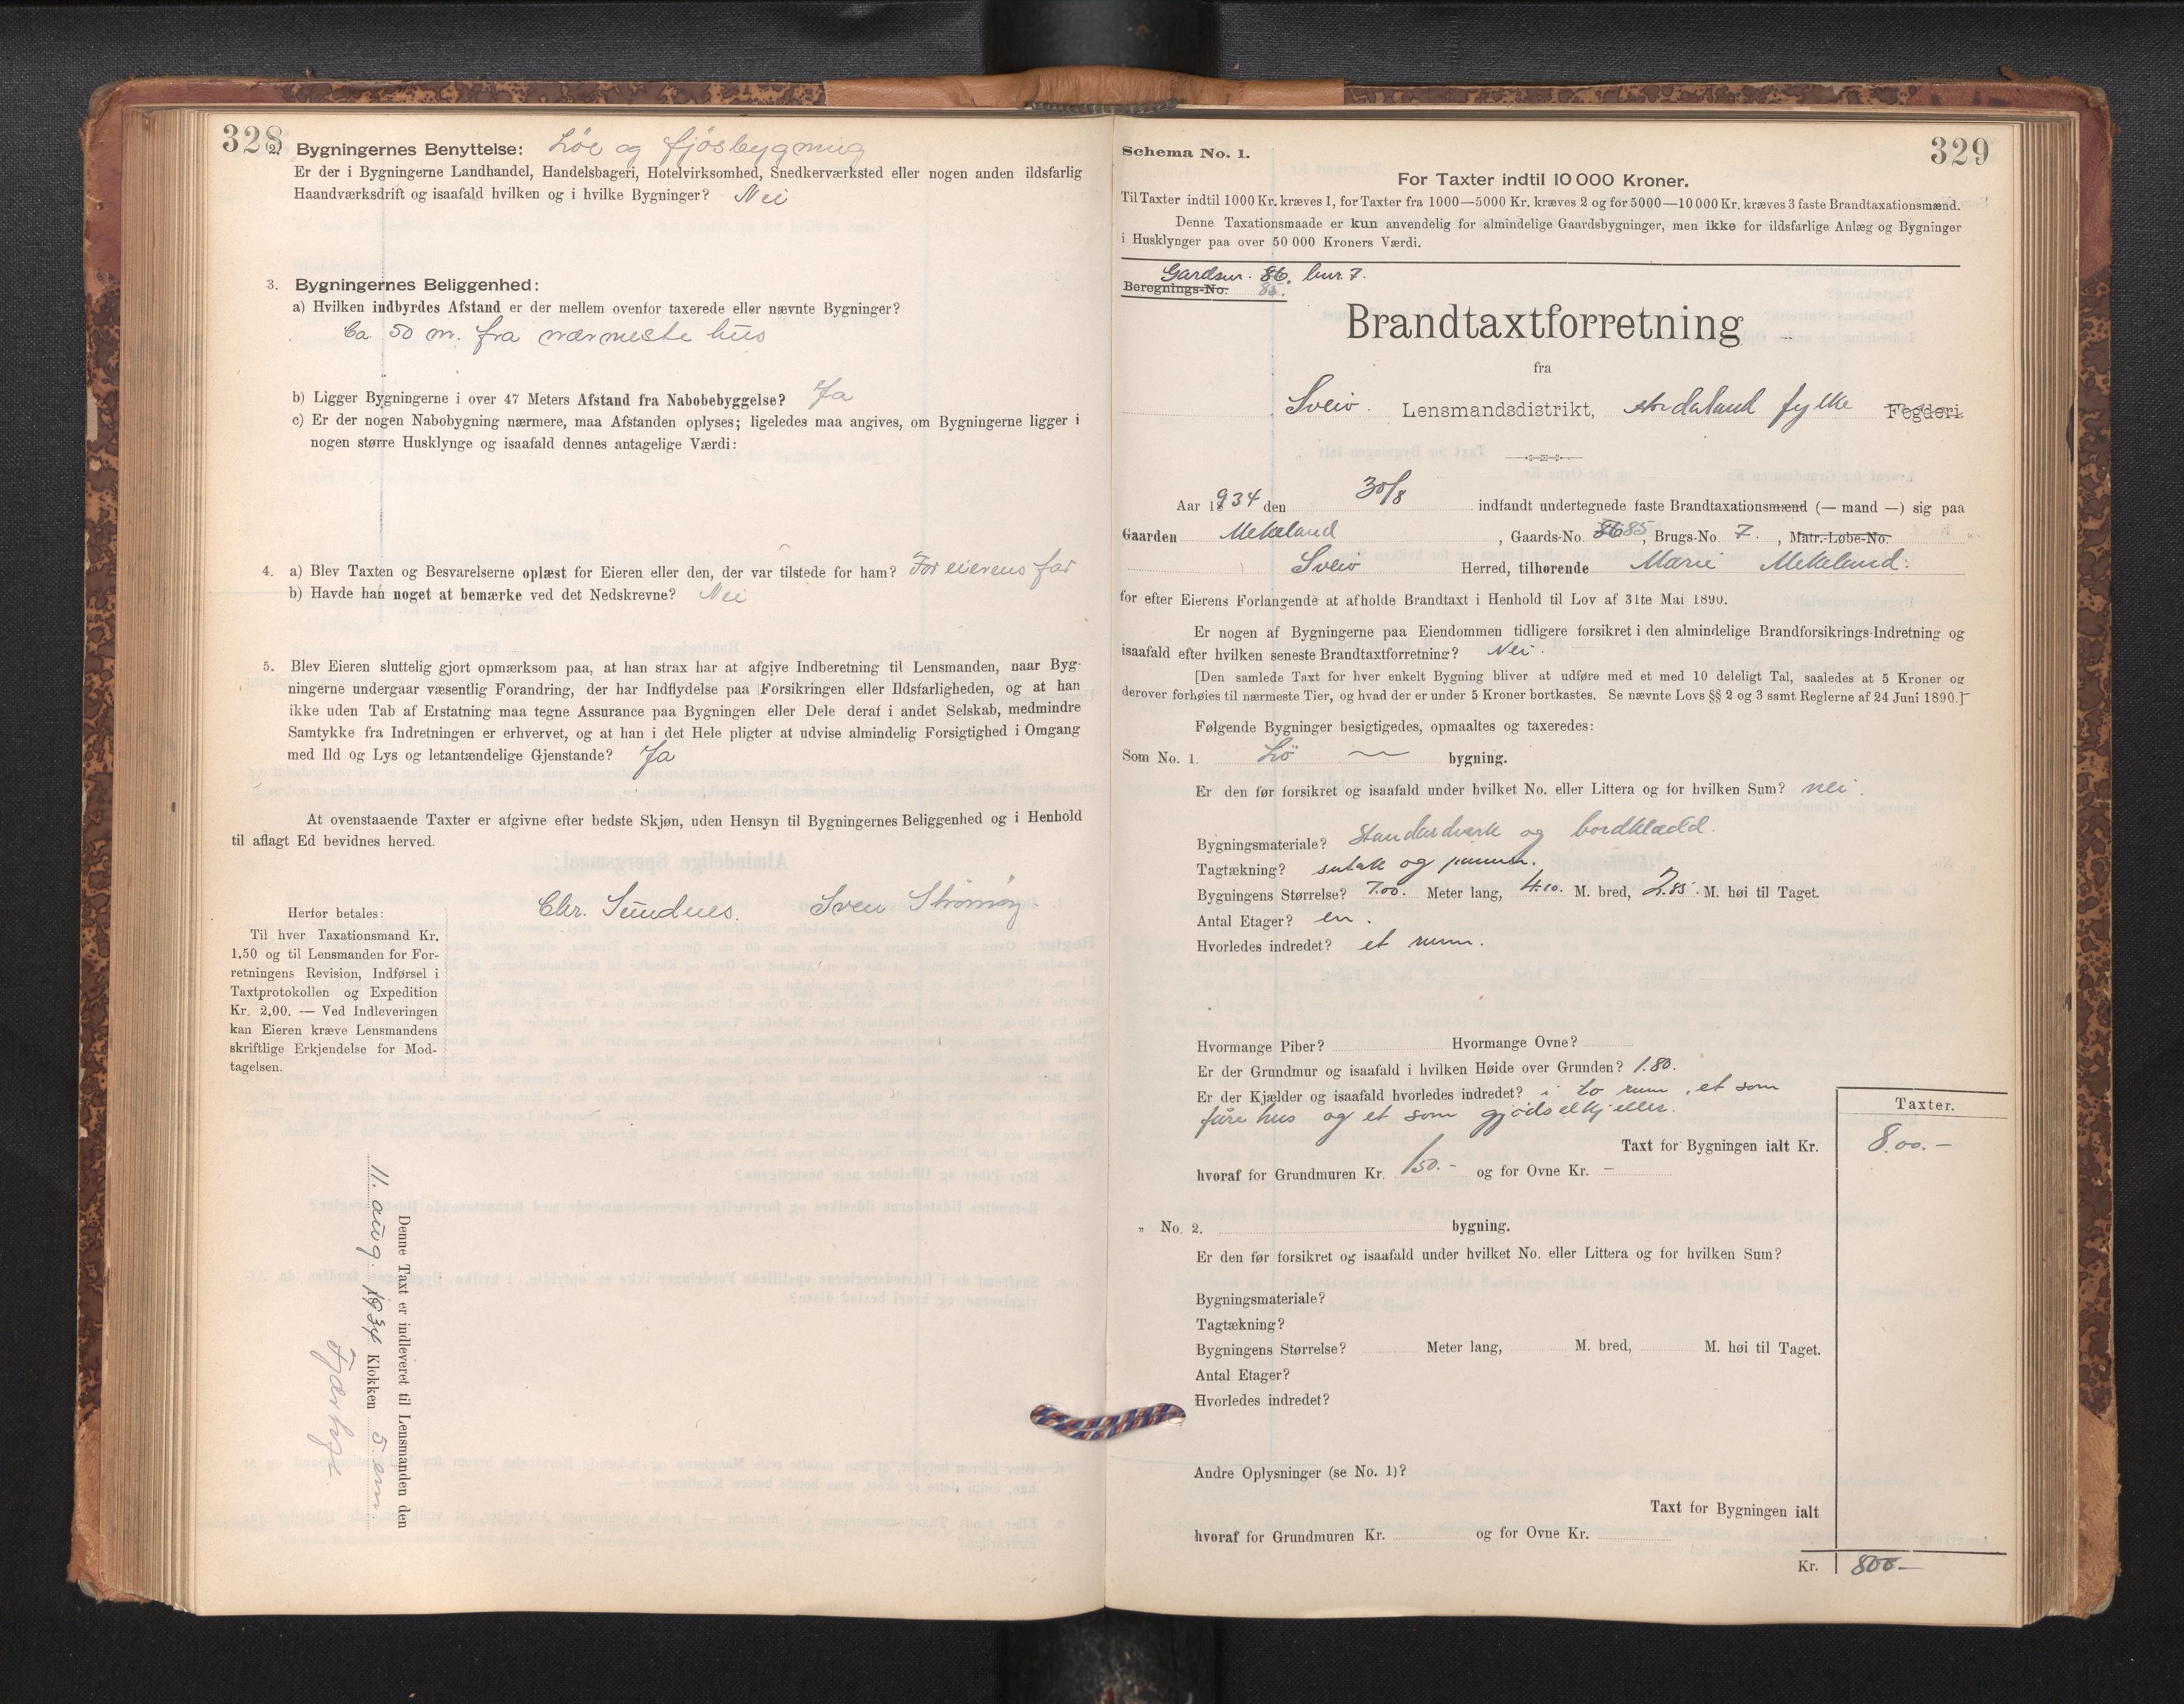 328
2. Bygningernes Benyttelse: Löe og fjösbygning
Er der i Bygningerne Landhandel, Handelsbageri, Hotelvirksomhed, Snedkerværksted eller nogen anden ildsfarlig
Haandværksdrift og isaafald hvilken og i hvilke Bygninger? Nei
3. Bygningernes Beliggenhed:
a) Hvilken indbyrdes Afstand er der mellem ovenfor taxerede eller nævnte Bygninger?
Ca. 50 m. fra nærmeste hus
b) Ligger Bygningerne i over 47 Meters Afstand fra Nabobebyggelse? Ja
c) Er der nogen Nabobygning nærmere, maa Afstanden oplyses; ligeledes maa angives, om Bygningerne ligger i
nogen større Husklynge og isaafald dennes antagelige Værdi:
4. a) Blev Taxten og Besvarelserne oplæst for Eieren eller den, der var tilstede for ham? For eierens far
b) Havde han noget at bemærke ved det Nedskrevne? Nei
5. Blev Eieren sluttelig gjort opmærksom paa, at han strax har at afgive Indberetning til Lensmanden, naar Byg-
ningerne undergaar væsentlig Forandring, der har Indflydelse paa Forsikringen eller Ildsfarligheden, og at han
ikke uden Tab af Erstatning maa tegne Assurance paa Bygningen eller Dele deraf i andet Selskab, medmindre
Samtykke fra Indretningen er erhvervet, og at han i det Hele pligter at udvise almindelig Forsigtighed i Omgang
med Ild og Lys og letantændelige Gjenstande? Ja
At ovenstaaende Taxter er afgivne efter bedste Skjøn, uden Hensyn til Bygningernes Beliggenhed og i Henhold
til aflagt Ed bevidnes herved.
Chr. Sundnes. Sven Strömöy
Herfor betales:
Til hver Taxationsmand Kr.
1.50 og til Lensmanden for For-
retningens Revision, Indførsel i
Taxtprotokollen og Expedition
Kr. 2.00. — Ved Indleveringen
kan Eieren kræve Lensmandens
skriftlige Erkjendelse for Mod-
tagelsen.
Denne Taxt er indleveret til Lensmanden den
11. aug. 1934 Klokken 5 em
329
Schema No. 1.
For Taxter indtil 10 000 Kroner.
Til Taxter indtil 1000 Kr. kræves 1, for Taxter fra 1000—5000 Kr. kræves 2 og for 5000—10 000 Kr. kræves 3 faste Brandtaxationsmænd.
Denne Taxationsmaade er kun anvendelig for almindelige Gaardsbygninger, men ikke for ildsfarlige Anlæg og Bygninger
i Husklynger paa over 50 000 Kroners Værdi.
Gardsnr. 86. bnr. 7.
Beregnings-No. 85.
Brandtaxtforretning
fra
Sveio Lensmandsdistrikt, Hordaland fylke Fogderi.
Aar 1934 den 30/8 indfandt undertegnede faste Brandtaxationsmænd (— mand —) sig paa
Gaarden Mekeland, Gaards-No. 86 85, Brugs-No. 7., Matr.-Løbe-No.
Sveio Herred, tilhørende Marie Mekeland.
for efter Eierens Forlangende at afholde Brandtaxt i Henhold til Lov af 31te Mai 1890.
Er nogen af Bygningerne paa Eiendommen tidligere forsikret i den almindelige Brandforsikrings-Indretning og
isaafald efter hvilken seneste Brandtaxtforretning? Nei.
[Den samlede Taxt for hver enkelt Bygning bliver at udføre med et med 10 deleligt Tal, saaledes at 5 Kroner og
derover forhøies til nærmeste Tier, og hvad der er under 5 Kroner bortkastes. Se nævnte Lovs §§ 2 og 3 samt Reglerne af 24 Juni 1890.]
Følgende Bygninger besigtigedes, opmaaltes og taxeredes:
Som No. 1. Lö bygning.
Er den før forsikret og isaafald under hvilket No. eller Littera og for hvilken Sum? nei.
Bygningsmateriale? Standardverk og bordklædd.
Tagtækning? sutak og panner.
Bygningens Størrelse? 7.00. Meter lang, 4.10. M. bred, 2.85. M. høi til Taget.
Antal Etager? en.
Hvorledes indredet? et rum.
Hvormange Piber? Hvormange Ovne?
Er der Grundmur og isaafald i hvilken Høide over Grunden? 1.80.
Er der Kjælder og isaafald hvorledes indredet? i to rum, et som
fårehus og et som gjödselkjeller.
Taxter.
Taxt for Bygningen ialt Kr. 8.00.-
hvoraf for Grundmuren Kr. 150.- og for Ovne Kr. -
" No. 2. bygning.
Er den før forsikret og isaafald under hvilket No. eller Littera og for hvilken Sum?
Bygningsmateriale?
Tagtækning?
Bygningens Størrelse? Meter lang, M. bred, M. høi til Taget.
Antal Etager?
Hvorledes indredet?
Andre Oplysninger (se No. 1)?
Taxt for Bygningen ialt
hvoraf for Grundmuren Kr. og for Ovne Kr.
Kr. 800-